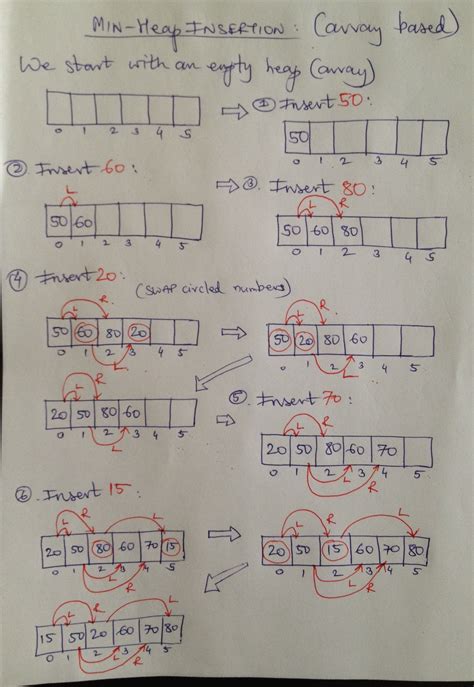 MIN-Heap INSERTION: (array based)
We start with an empty heap (array)
0 1 2 3 4 5
① Insert 50:
50
0 1 2 3 4 5
② Insert 60:
L
50 60
0 1 2 3 4 5
③. Insert 80:
L R
50 60 80
0 1 2 3 4 5
④ Insert 20:
(SWAP circled numbers)
L R
50 60 80 20
0 1 2 3 4 5
L
L R
50 20 80 60
0 1 2 3 4 5
L
L R
20 50 80 60
0 1 2 3 4 5
L
⑤. Insert 70:
L R
20 50 80 60 70
0 1 2 3 4 5
L
R
⑥. Insert 15:
L R L
20 50 80 60 70 15
0 1 2 3 4 5
L
R
L R L
20 50 15 60 70 80
0 1 2 3 4 5
L
R
L R L
15 50 20 60 70 80
0 1 2 3 4 5
L
R